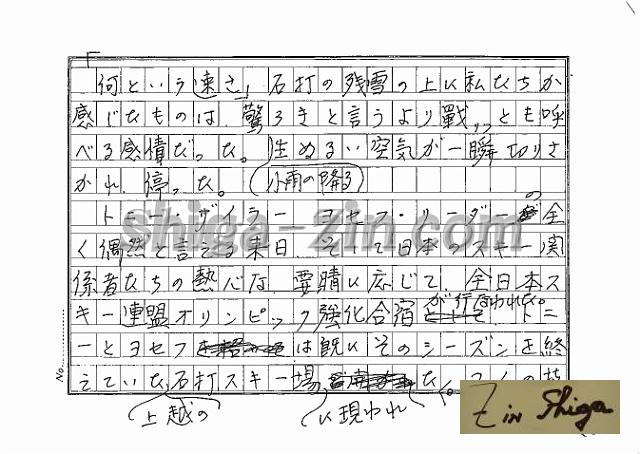 何という速さ」石打の残雪の上に私たちが
感じたものは、驚ろきと言うより戰りつとも呼
べる感情だった。生ぬるい空気が一瞬切りさ
かれ、停った。(小雨の降る)
トニー・ザイラー ヨセフ・リーダーの全
く偶然と言える来日、そして日本のスキー関
係者たちの熱心な要晴に応じて、全日本ス
キー連盟オリンピック強化合宿が行なわれた。トニ
ーとヨセフは既にそのシーズンを終
えていた石打スキー場
上越の に現われた。
shiga-zin.com
No.
Z in Shiga